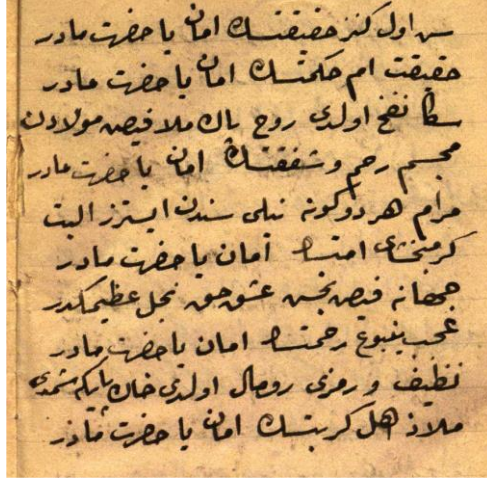 سن اول كنز حقيقتسك امان يا حضرت مادر
حقيقت ام حكمتسك امان يا حضرت مادر
سكا نفخ اولدى روح پاك ملا فيض مولادن
مجسم رحم و شفقتسك امان يا حضرت مادر
مرام هر دو كونه نيلى سندن ايسترز البت
كرمبخشاى امتسك امان يا حضرت مادر
جهانه فيض بخش عشق حق نجل عظيمكدر
عجب ينبوع رحمتسك امان يا حضرت مادر
نظيف و رمزى رومال اولدى خاك پايكه شمدى
ملاذ اهل كربتسك امان يا حضرت مادر